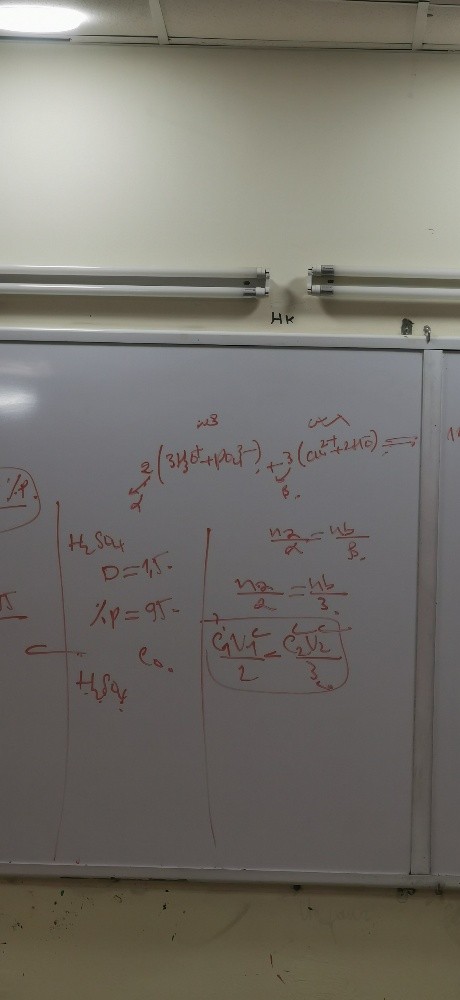 HK
2(3H₃O⁺+PO₄³⁻)+3(Cu²⁺+2HO⁻)⇌
α
β.
%P.
H₂SO₄
D=1,5.
%P=95
C₀.
H₂SO₄
na/α=nb/β.
na/2=nb/3.
C₁V₁/2=C₂V₂/3